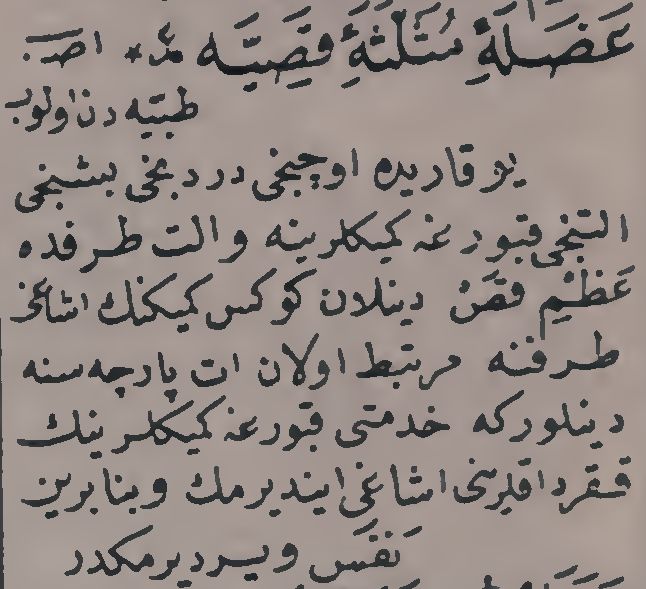 عَضَلَۀِ مُثَلَّثَۀِ قَصِّيَّه مذ* اصـ.
طبيّه دن اولوب
يوقاريده اوچنجى دردنجى بشنجى
التنجى قبورغه كميكلرينه والت طرفده
عَظْمِ قَصّ دينلان كوكس كميكنك اشاغى
طرفنه مرتبط اولان ات پارچه سنه
دينلوركه خدمتى قبورغه كميكلرينك
ققرداقلرينى اشاغى اينديرمك وبنابرين
تَنَفُّسْ ويرديرمكدر